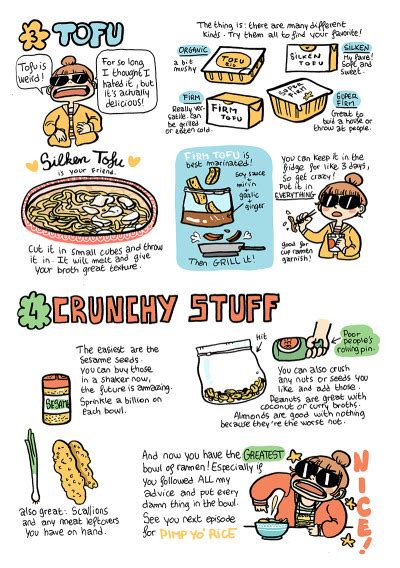 3 TOFU
The thing is: there are many different
kinds. Try them all to find your favorite!
Tofu is
weird!
For so long
I thought I
hated it, but
it's actually
delicious!
ORGANIC
a bit
mushy
TOFU
SILKEN
TOFU
SILKEN
My fave!
Soft and
sweet.
FIRM
Really ver-
satile. can
be grilled
or eaten cold.
FIRM
TOFU
SUPER
FIRM
SUPER
FIRM
Great to
build a house or
throw at people.
Silken Tofu
is your friend.
Cut it in small cubes and throw
it in. It will melt and give
your broth great texture.
FIRM TOFU is
best marinated!
soy sauce
+
mirin
+
garlic
+
ginger
Then GRILL it!
you can keep it in the
fridge for like 3 days,
so get crazy!
Put it in
EVERYTHING
good for
cup ramen
garnish!
4 CRUNCHY STUFF
The easiest are the
Sesame seeds.
You can buy those
in a shaker now,
the future is amazing.
Sprinkle a billion on
each bowl.
SESAME
Hit
Poor
people's
rolling pin.
You can also crush
any nuts or seeds you
like and add those.
Peanuts are great with
coconut or curry broths.
Almonds are good with nothing
because they're the worst nut.
also great: Scallions
and any meat leftovers
you have on hand.
And now you have the GREATEST
bowl of ramen! Especially if
you followed ALL my
advice and put every
damn thing in the bowl.
See you next episode
for PIMP YO' RICE
NICE!